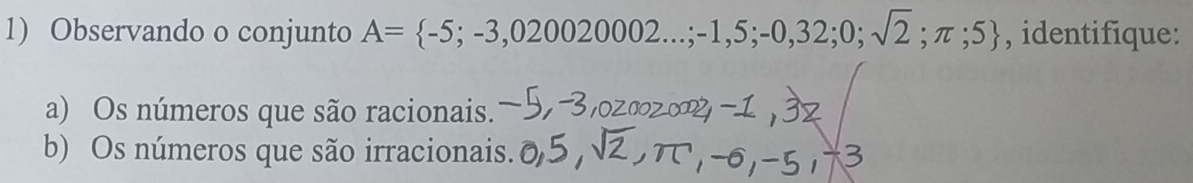 1) Observando o conjunto A= {-5; -3,020020002...;-1,5;-0,32;0; √2 ; π ;5}, identifique:
a) Os números que são racionais. -5, -3,020020002, -1, 32
b) Os números que são irracionais. 0,5, √2, π, -6, -5, -3